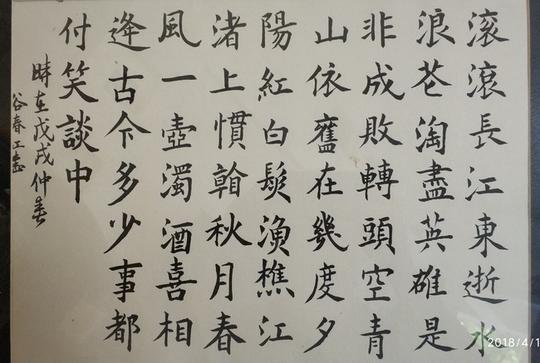 滚滾長江東逝水
浪花淘盡英雄是
非成敗轉頭空青
山依舊在幾度夕
陽紅白髮漁樵江
渚上慣看秋月春
風一壺濁酒喜相
逢古今多少事都
付笑談中
時在戊戌仲春
谷春
2018/4/1